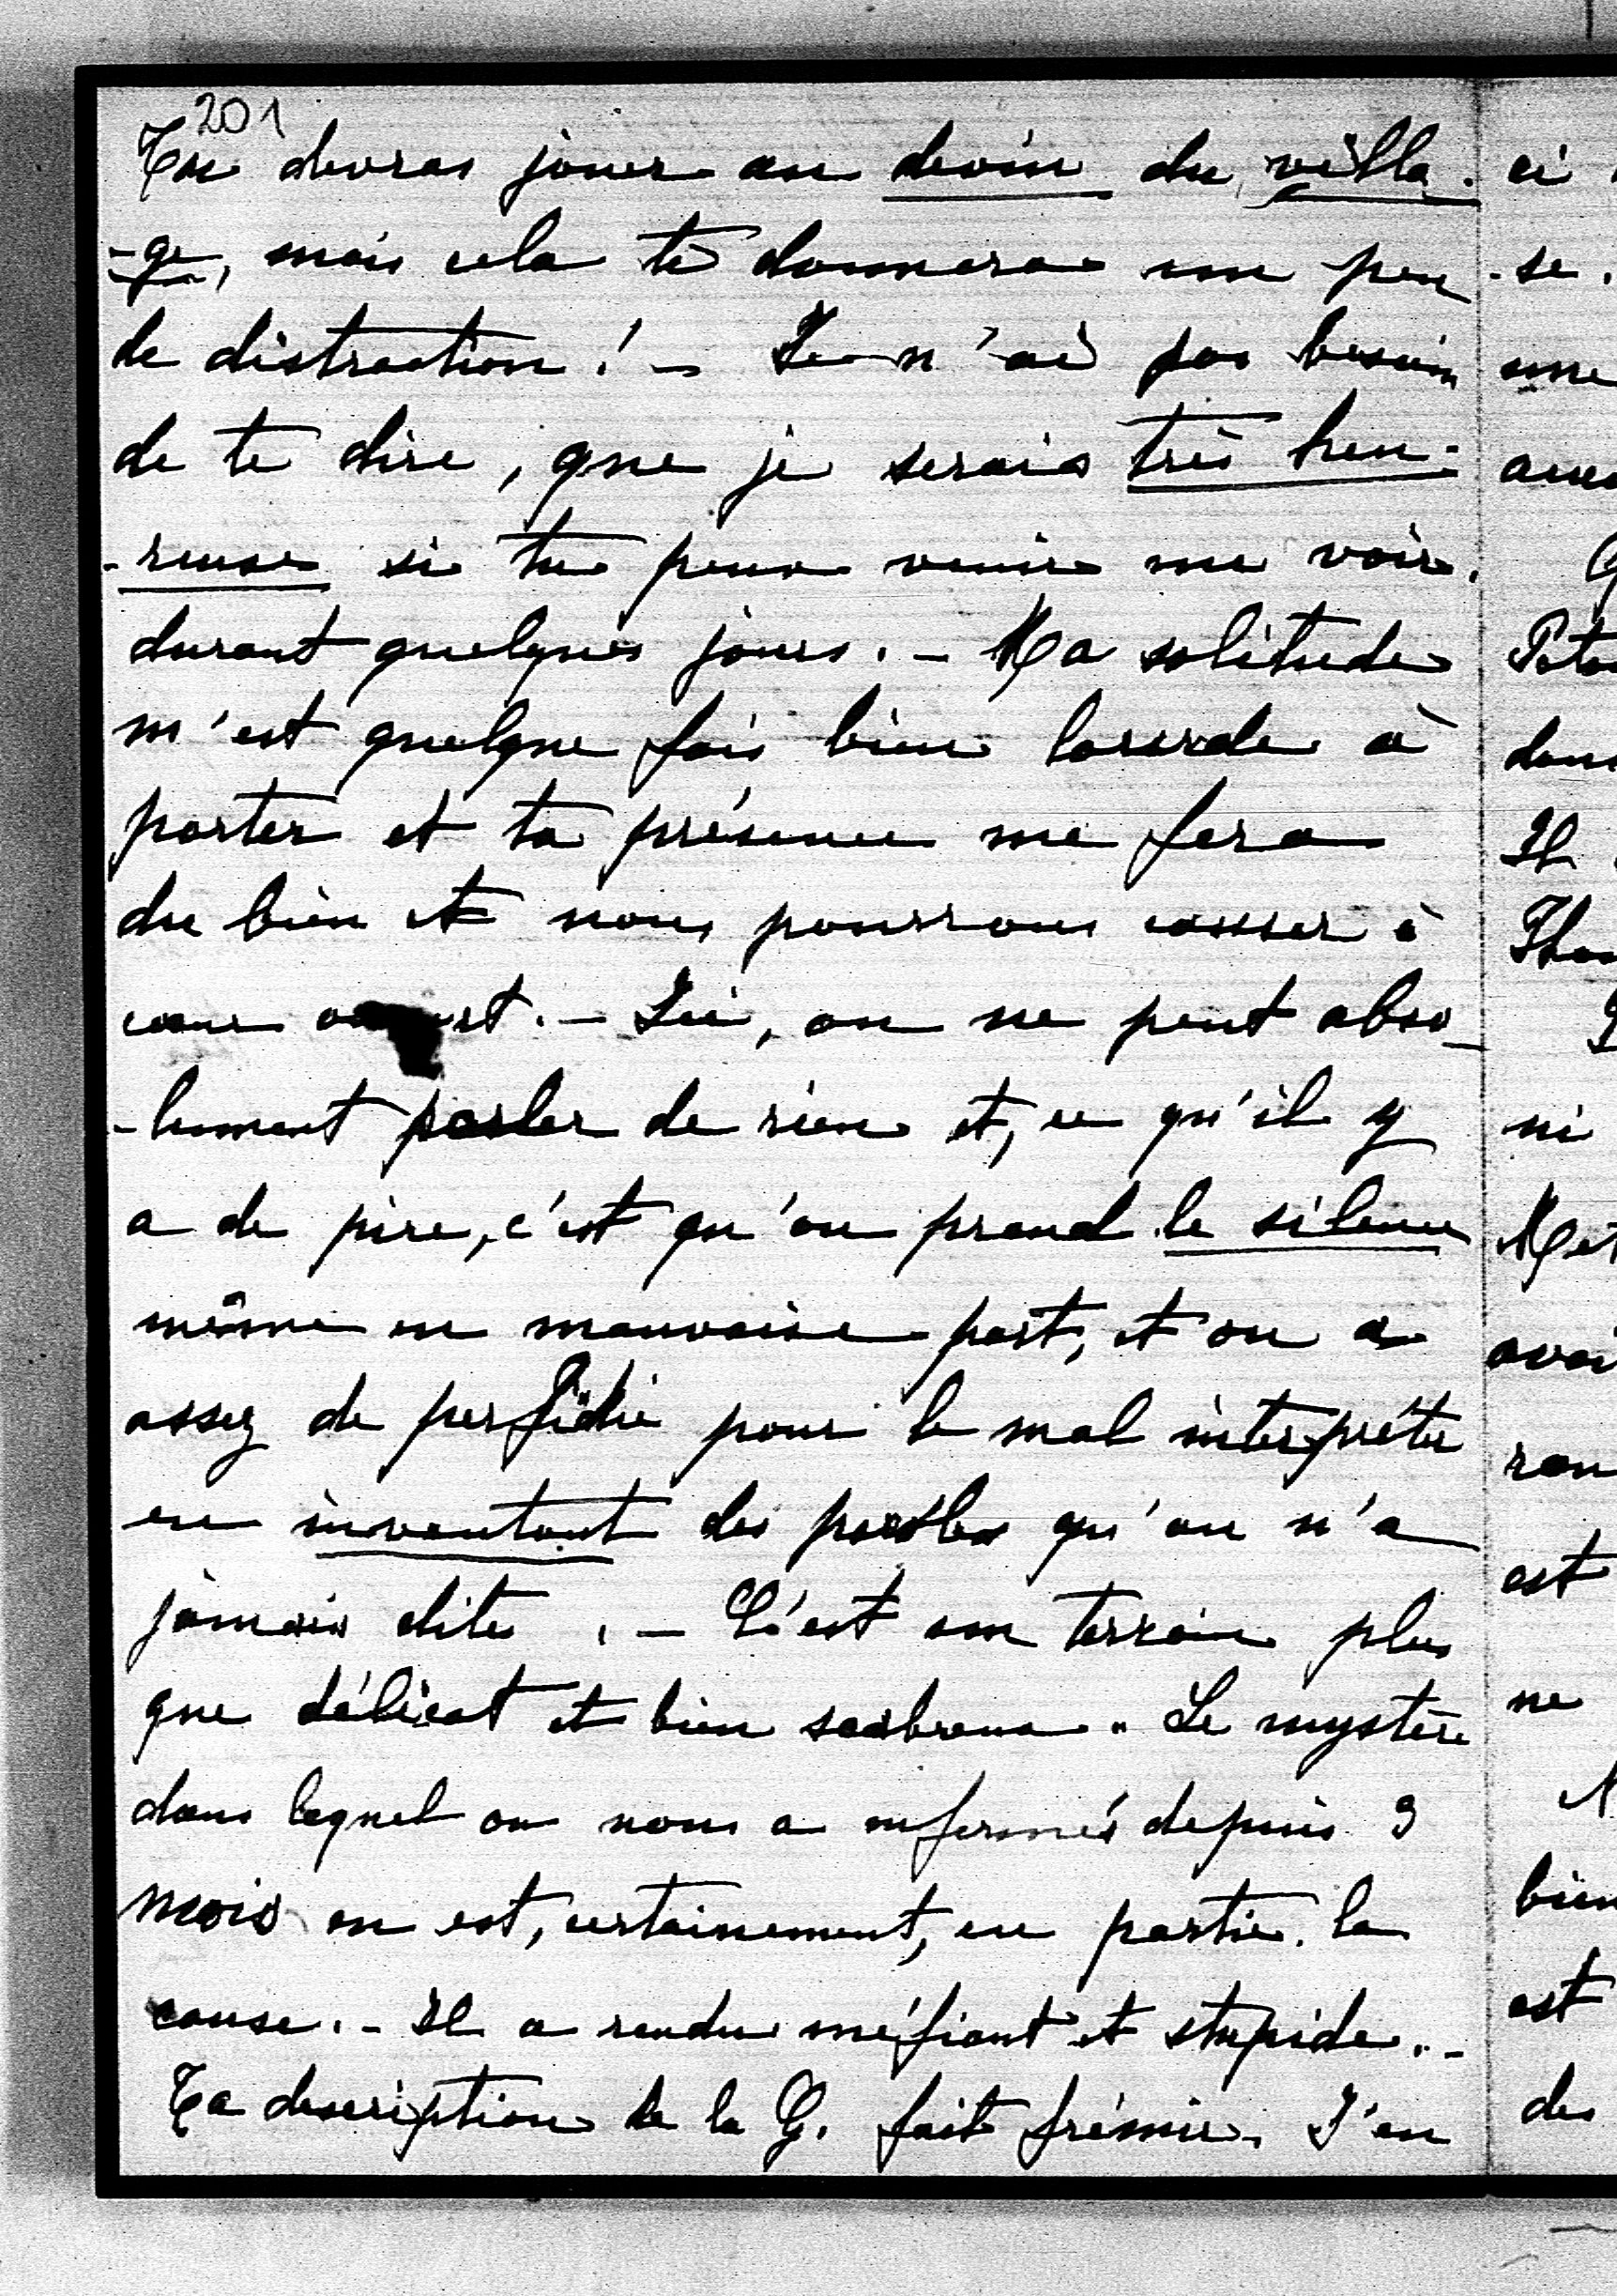 201
Tu devras jouer au devin du villa-
-ge, mais cela te donnera un peu
de distraction ! - Je n'ai pas besoin
de te dire, que je serais très heu-
-reuse si tu peux venir me voir.
durant quelques jours. - Ma solitude
m'est quelque fois bien lourde à
porter et ta présence me fera
du bien et nous pourrons causer à
cœur ouvert. - Ici, on ne peut abso-
-lument parler de rien et, ce qu'il y
a de pire, c'est qu'on prend le silence
même en mauvaise part, et on a
assez de perfidie pour le mal interpréter
en inventant des paroles qu'on n'a
jamais dites . - C'est un terrain plus
que délicat et bien scabreux. Le mystère
dans lequel on nous a enfermés depuis 9
mois en est, certainement, en partie la
cause. - Il a rendu méfiant et stupide. -
Ta description de la G. fait frémir. J'en
ci
-se.
une
Il
ni
est
ne
est
des